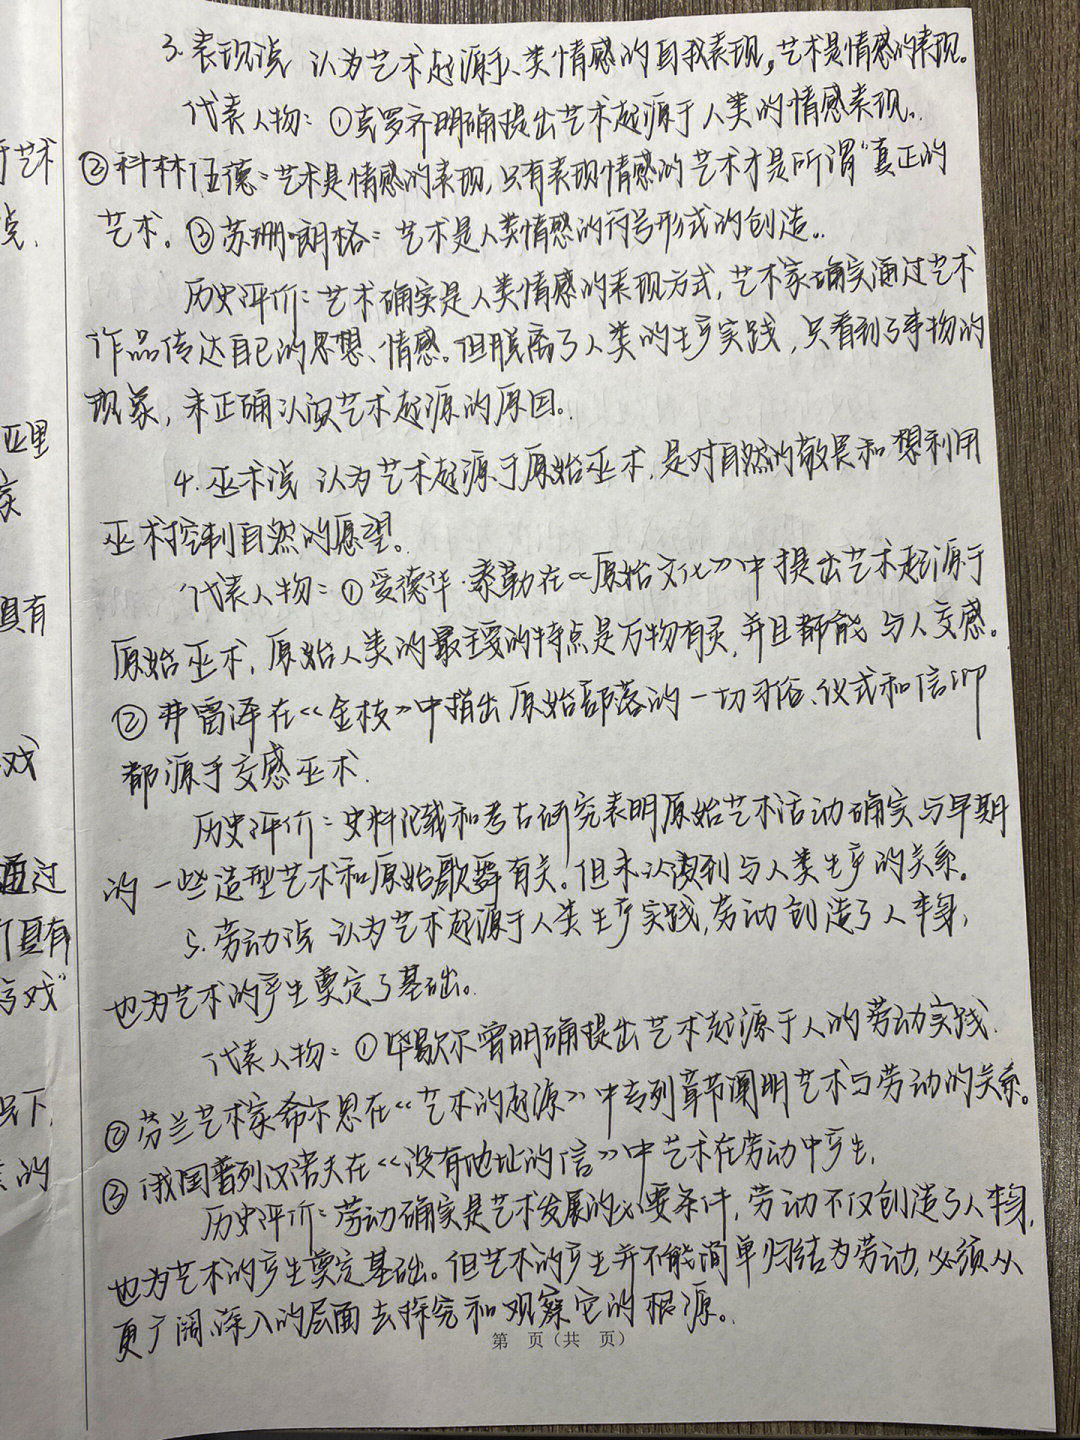 3.表现说 认为艺术起源于人类情感的自我表现,艺术是情感的表现。
代表人物:①克罗齐明确提出艺术起源于人类的情感表现。
②科林伍德:艺术是情感的表现,只有表现情感的艺术才是所谓“真正的
艺术。③苏珊·朗格:艺术是人类情感的符号形式的创造。
历史评价:艺术确实是人类情感的表现方式,艺术家确实通过艺术
作品传达自己的思想、情感。但脱离了人类的生产实践,只看到了事物的
现象,未正确认识艺术起源的原因。
4.巫术说 认为艺术起源于原始巫术,是对自然的敬畏和想利用
巫术控制自然的愿望。
代表人物:①爱德华·泰勒在《原始文化》中提出艺术起源于
原始巫术,原始人类的最主要的特点是万物有灵,并且都能与人交感。
②弗雷泽在《金枝》中指出原始部落的一切习俗、仪式和信仰
都源于交感巫术.
历史评价:史料记载和考古研究表明原始艺术活动确实与早期
的一些造型艺术和原始歌舞有关。但未认识到与人类生产的关系。
5.劳动说 认为艺术起源于人类生产实践,劳动创造了人本身,
也为艺术的产生奠定了基础。
代表人物:①毕歇尔曾明确提出艺术起源于人的劳动实践.
②芬兰艺术家希尔恩在《艺术的起源》中专列章节阐明艺术与劳动的关系。
③俄国普列汉诺夫在《没有地址的信》中艺术在劳动中产生,
历史评价:劳动确实是艺术发展的必要条件,劳动不仅创造了人本身,
也为艺术的产生奠定基础。但艺术的产生并不能简单归结为劳动,必须从
更广阔、深入的层面去探究和观察它的根源。
第 页(共 页)
于艺术
说.
亚里
具有
戏
通过
具有
戏”
下,
的